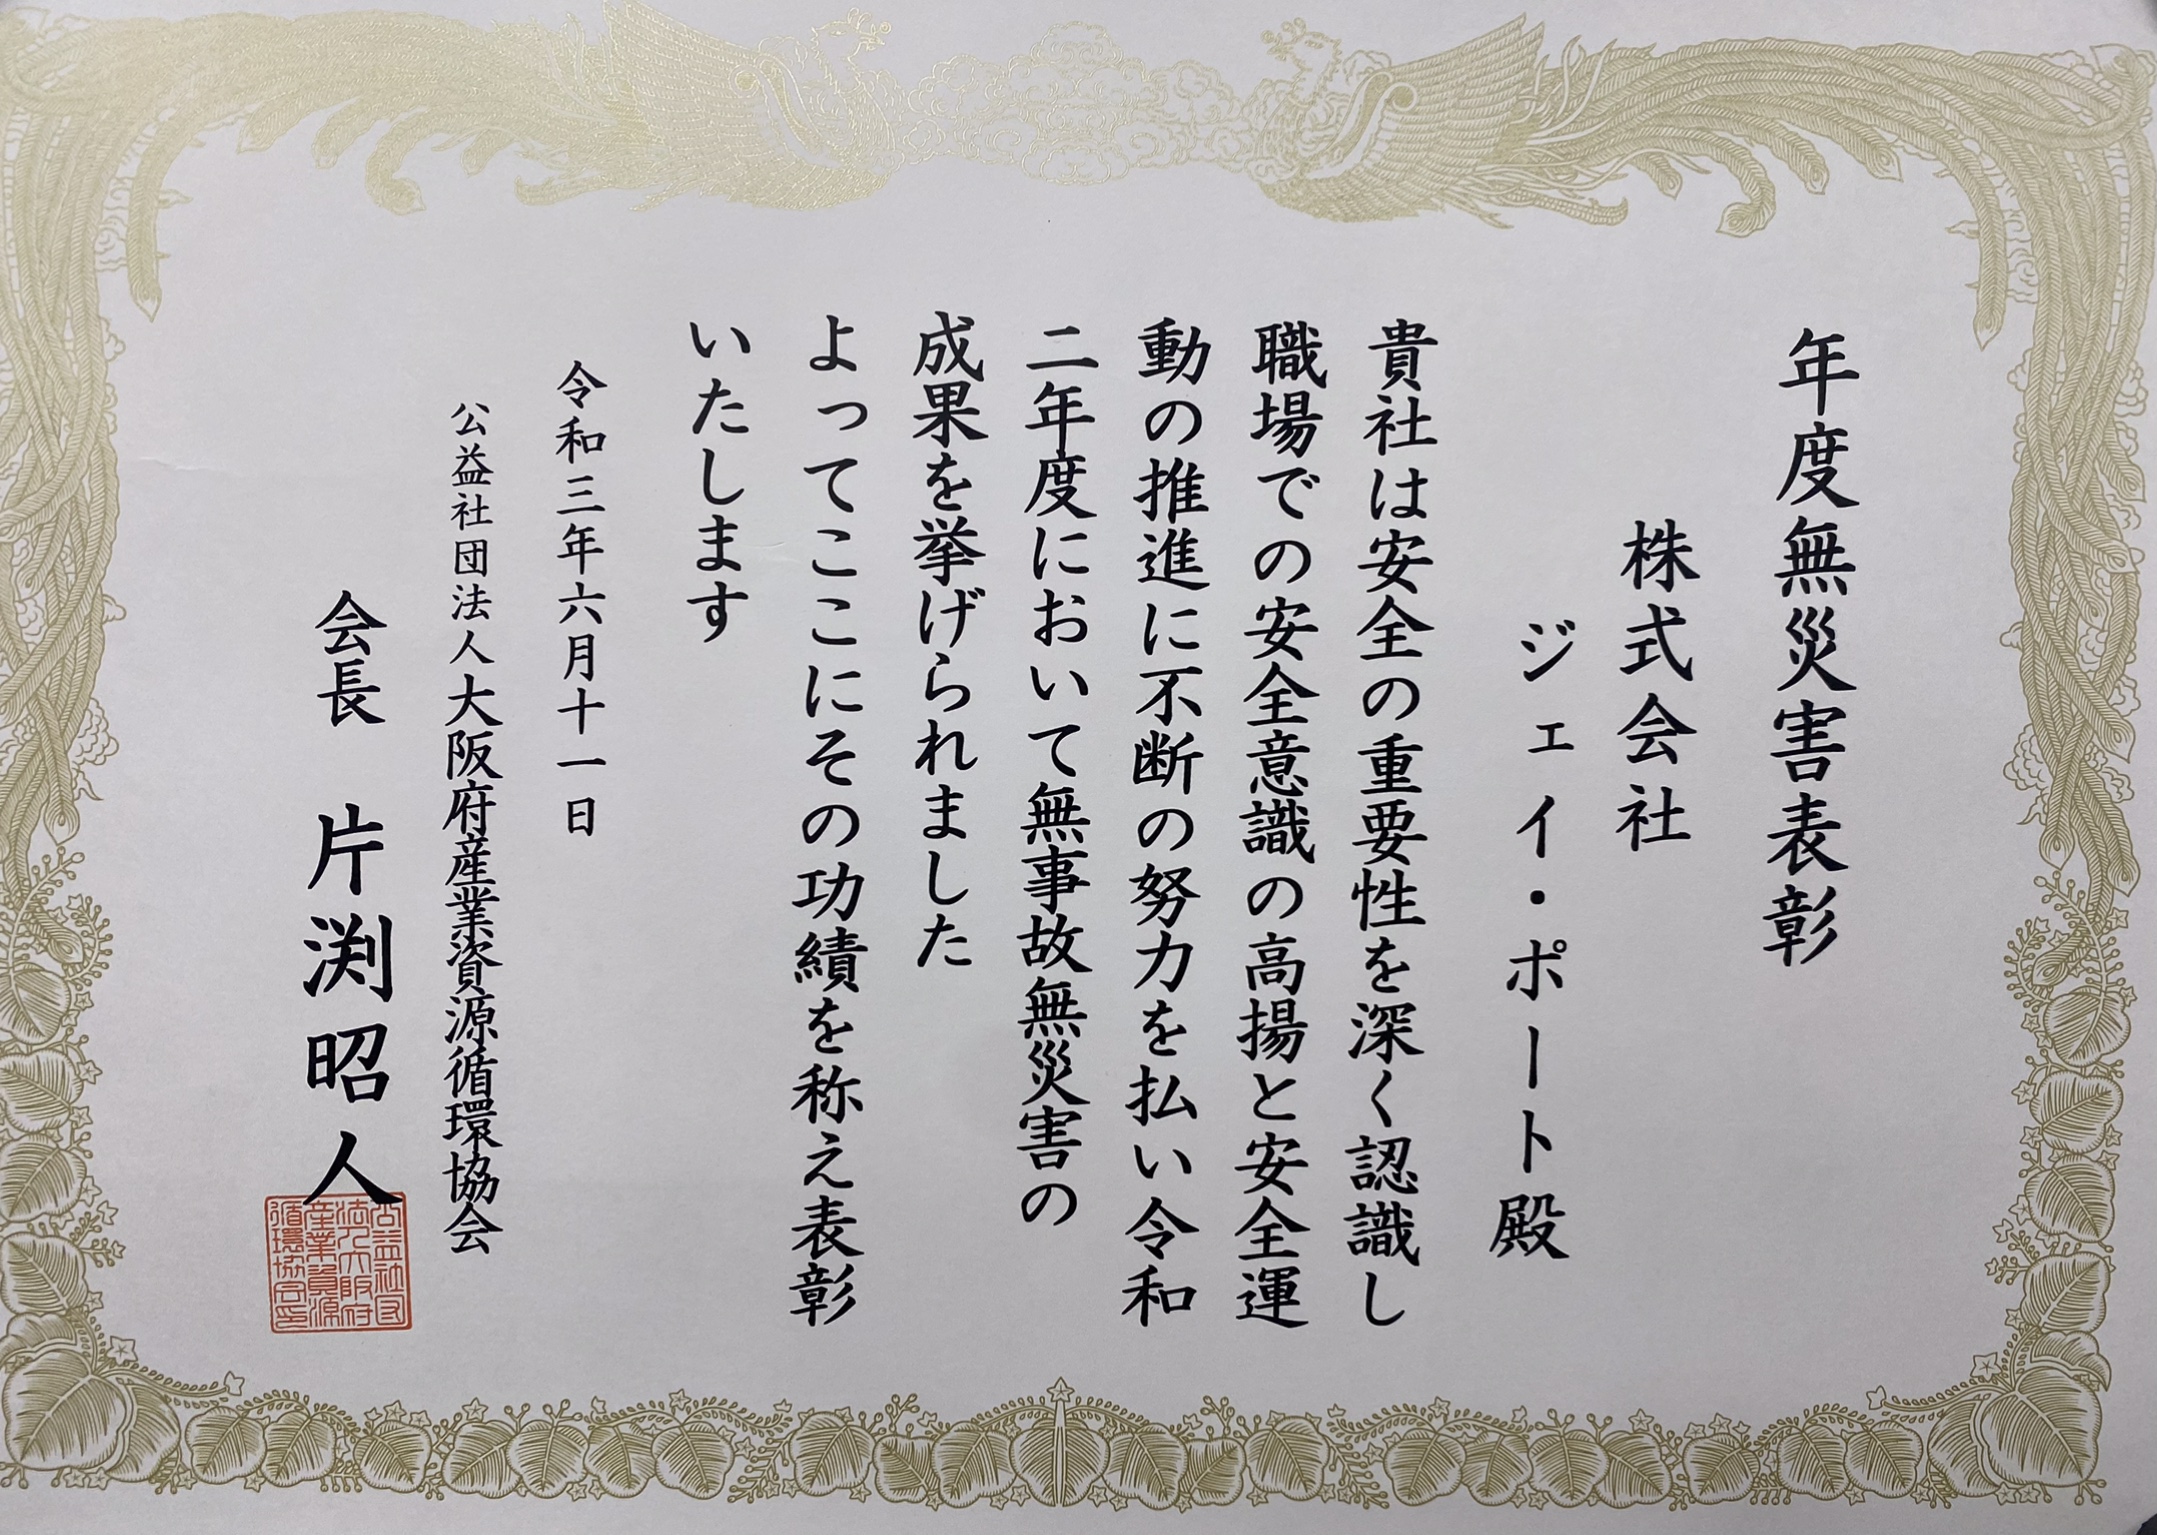 年度無災害表彰
株式会社
ジェイ・ポート殿
貴社は安全の重要性を深く認識し
職場での安全意識の高揚と安全運
動の推進に不断の努力を払い令和
二年度において無事故無災害の
成果を挙げられました
よってここにその功績を称え表彰
いたします
令和三年六月十一日
公益社団法人大阪府産業資源循環協会
会長 片渕昭人
公益社団
法人大阪府
産業資源
循環協会印